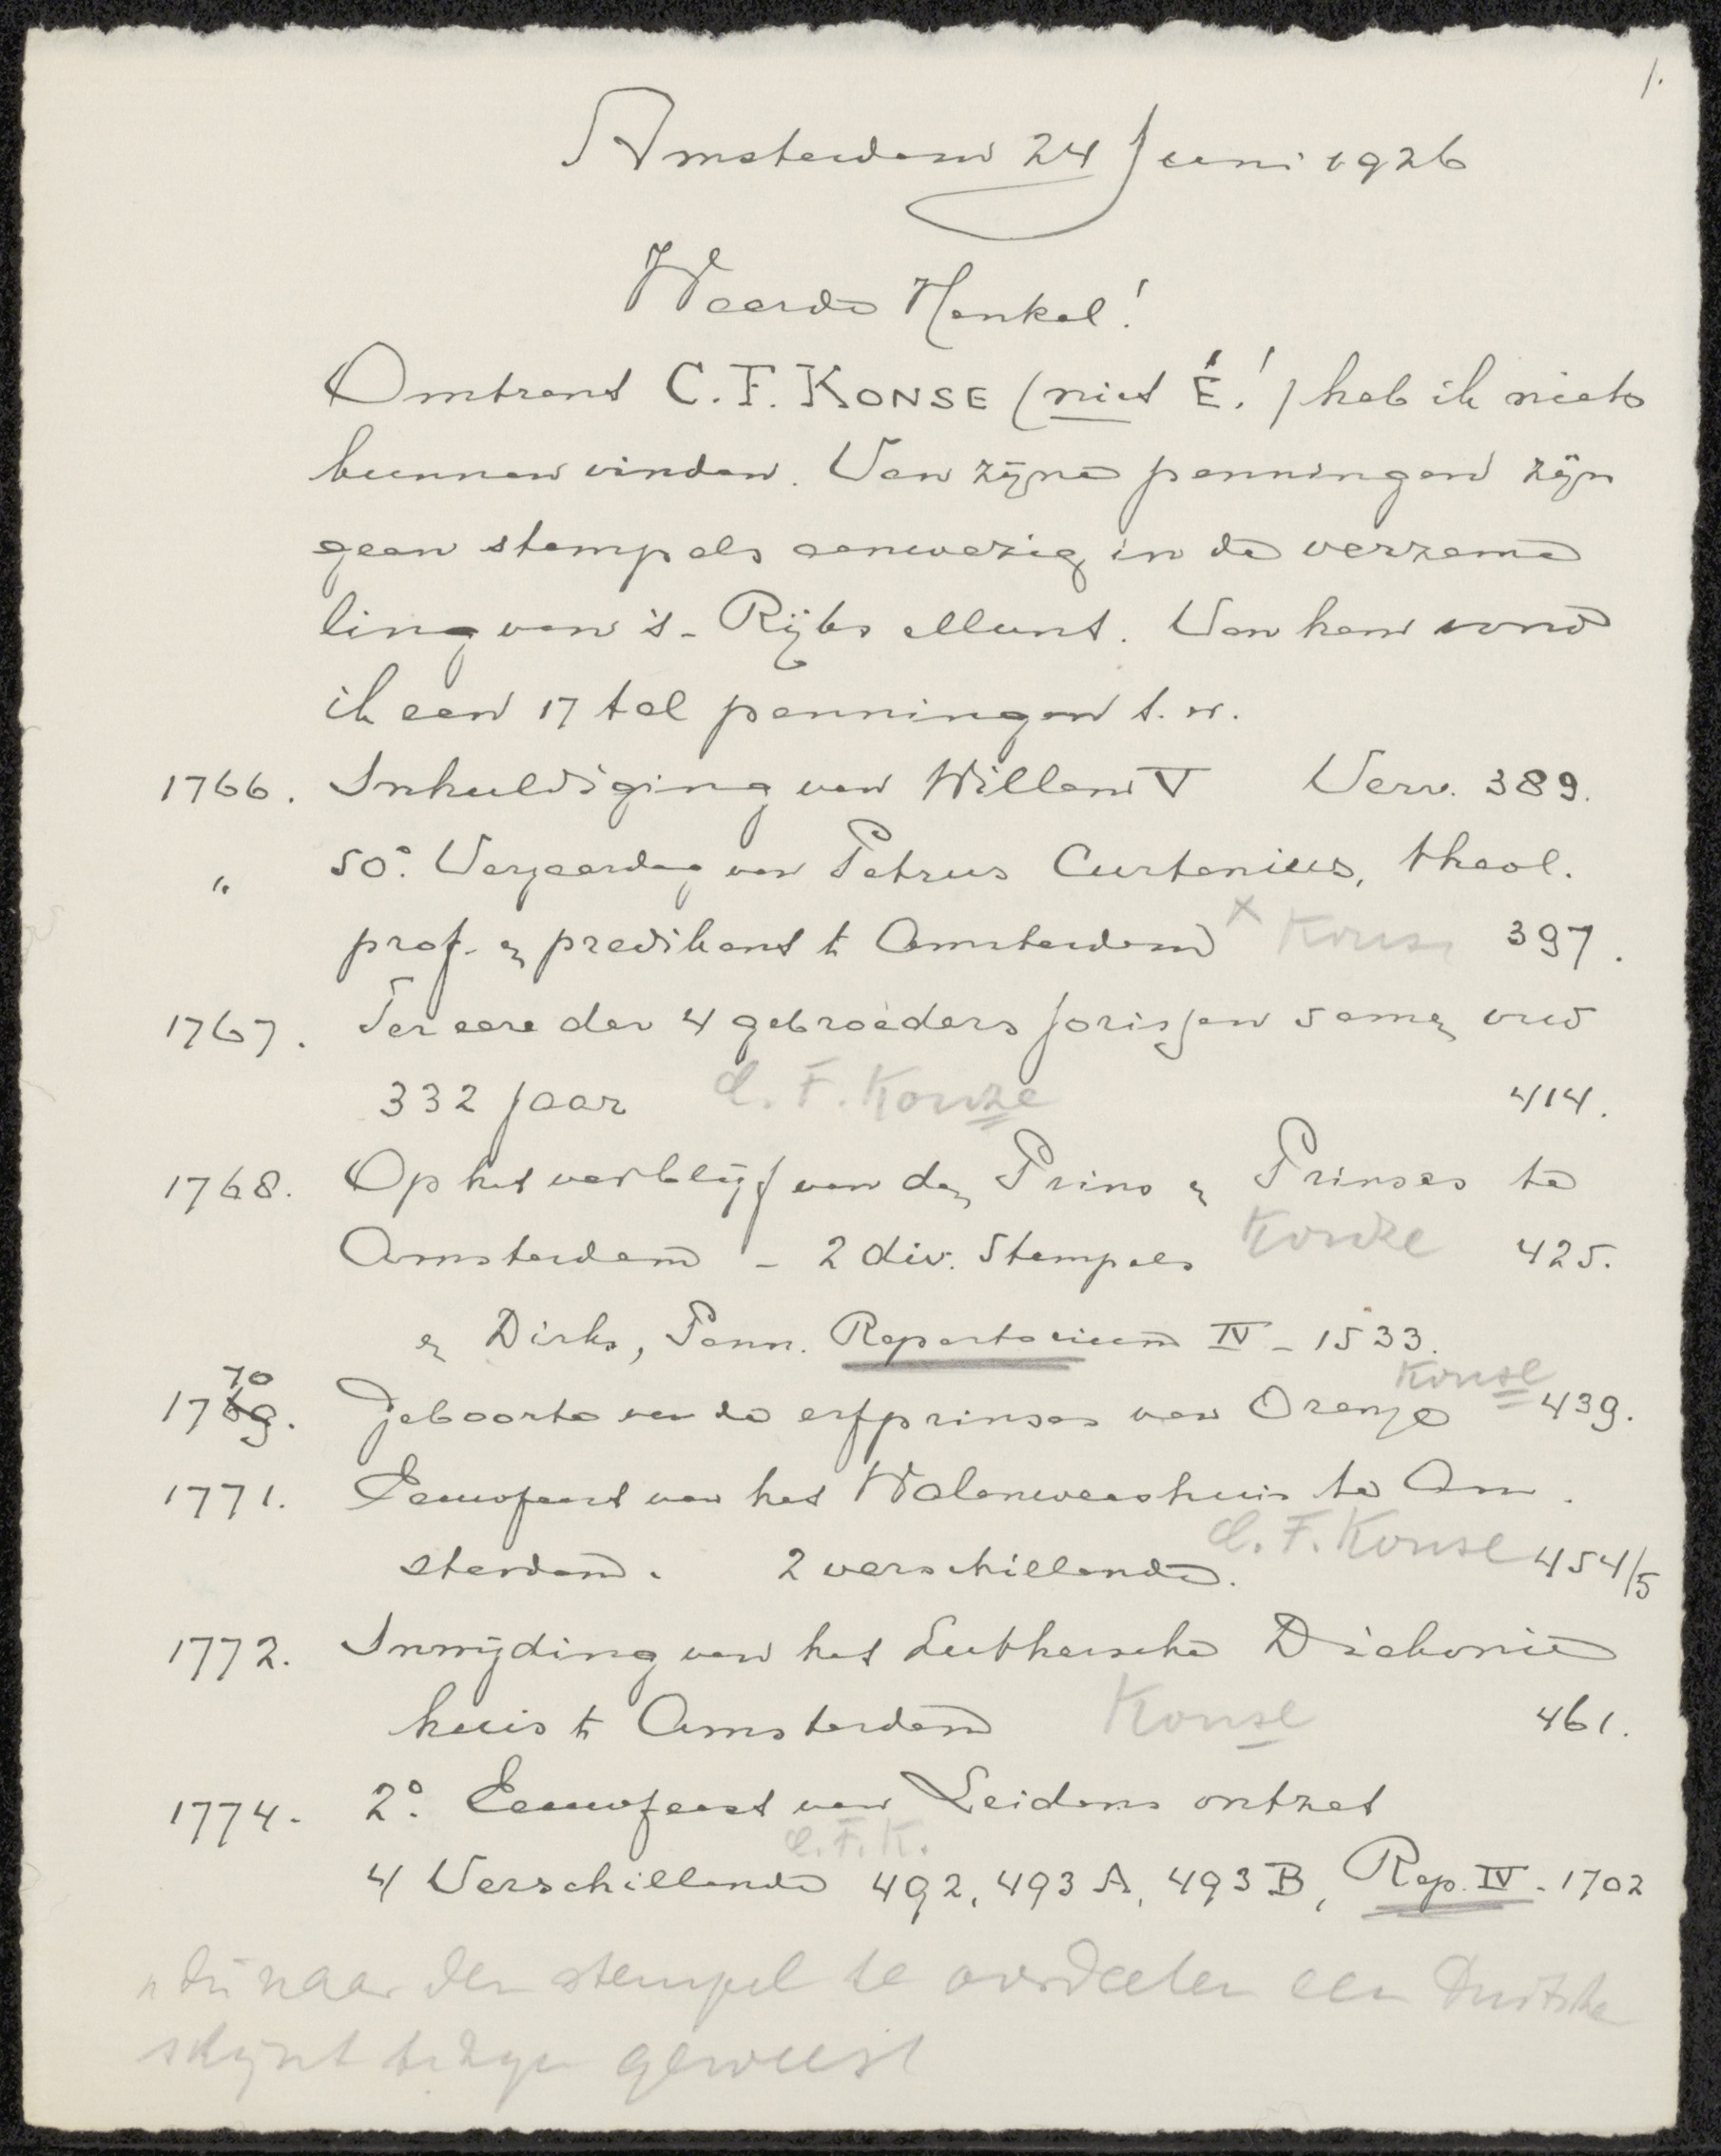 1.
Amsterdam 24 Juni 1926
Waarde Henkel!
Omtrent C.F. KONSE (niet É!) heb ik niets
kunnen vinden. Van zijne penningen zijn
geen stempels aanwezig in de verzame
ling van 's-Rijks Munt. Van hem vond
ik een 17 tal penningen t.w.
1766. Inhuldiging van Willem V Verv. 389.
" 50e. Verjaardag van Petrus Curtenius, theol.
prof. en predikant te Amsterdam x Konse 397.
1767. Ter eere der 4 gebroeders Jorissen samen oud
332 jaar C. F. Konze 414.
1768. Op het verblijf van den Prins en Prinses te
Amsterdam - 2 div. Stempels Konze 425.
en Dirks, Penn. Repertorium IV - 1533.
70 Konse
1769. Geboorte van de erfprinses van Oranje 439.
1771. Eeuwfeest van het Walenweeshuis te Am.
sterdam. 2 verschillende. C. F. Konse 454/5
1772. Inwijding van het Luthersche Diakonie
huis te Amsterdam Konse 461.
1774. 2e. Eeuwfeest van Leidens ontzet
C. F. K.
4 Verschillende 492, 493 A, 493 B, Rep. IV - 1702
naar den stempel te oordeelen een Duitsche
schijnt te zijn geweest